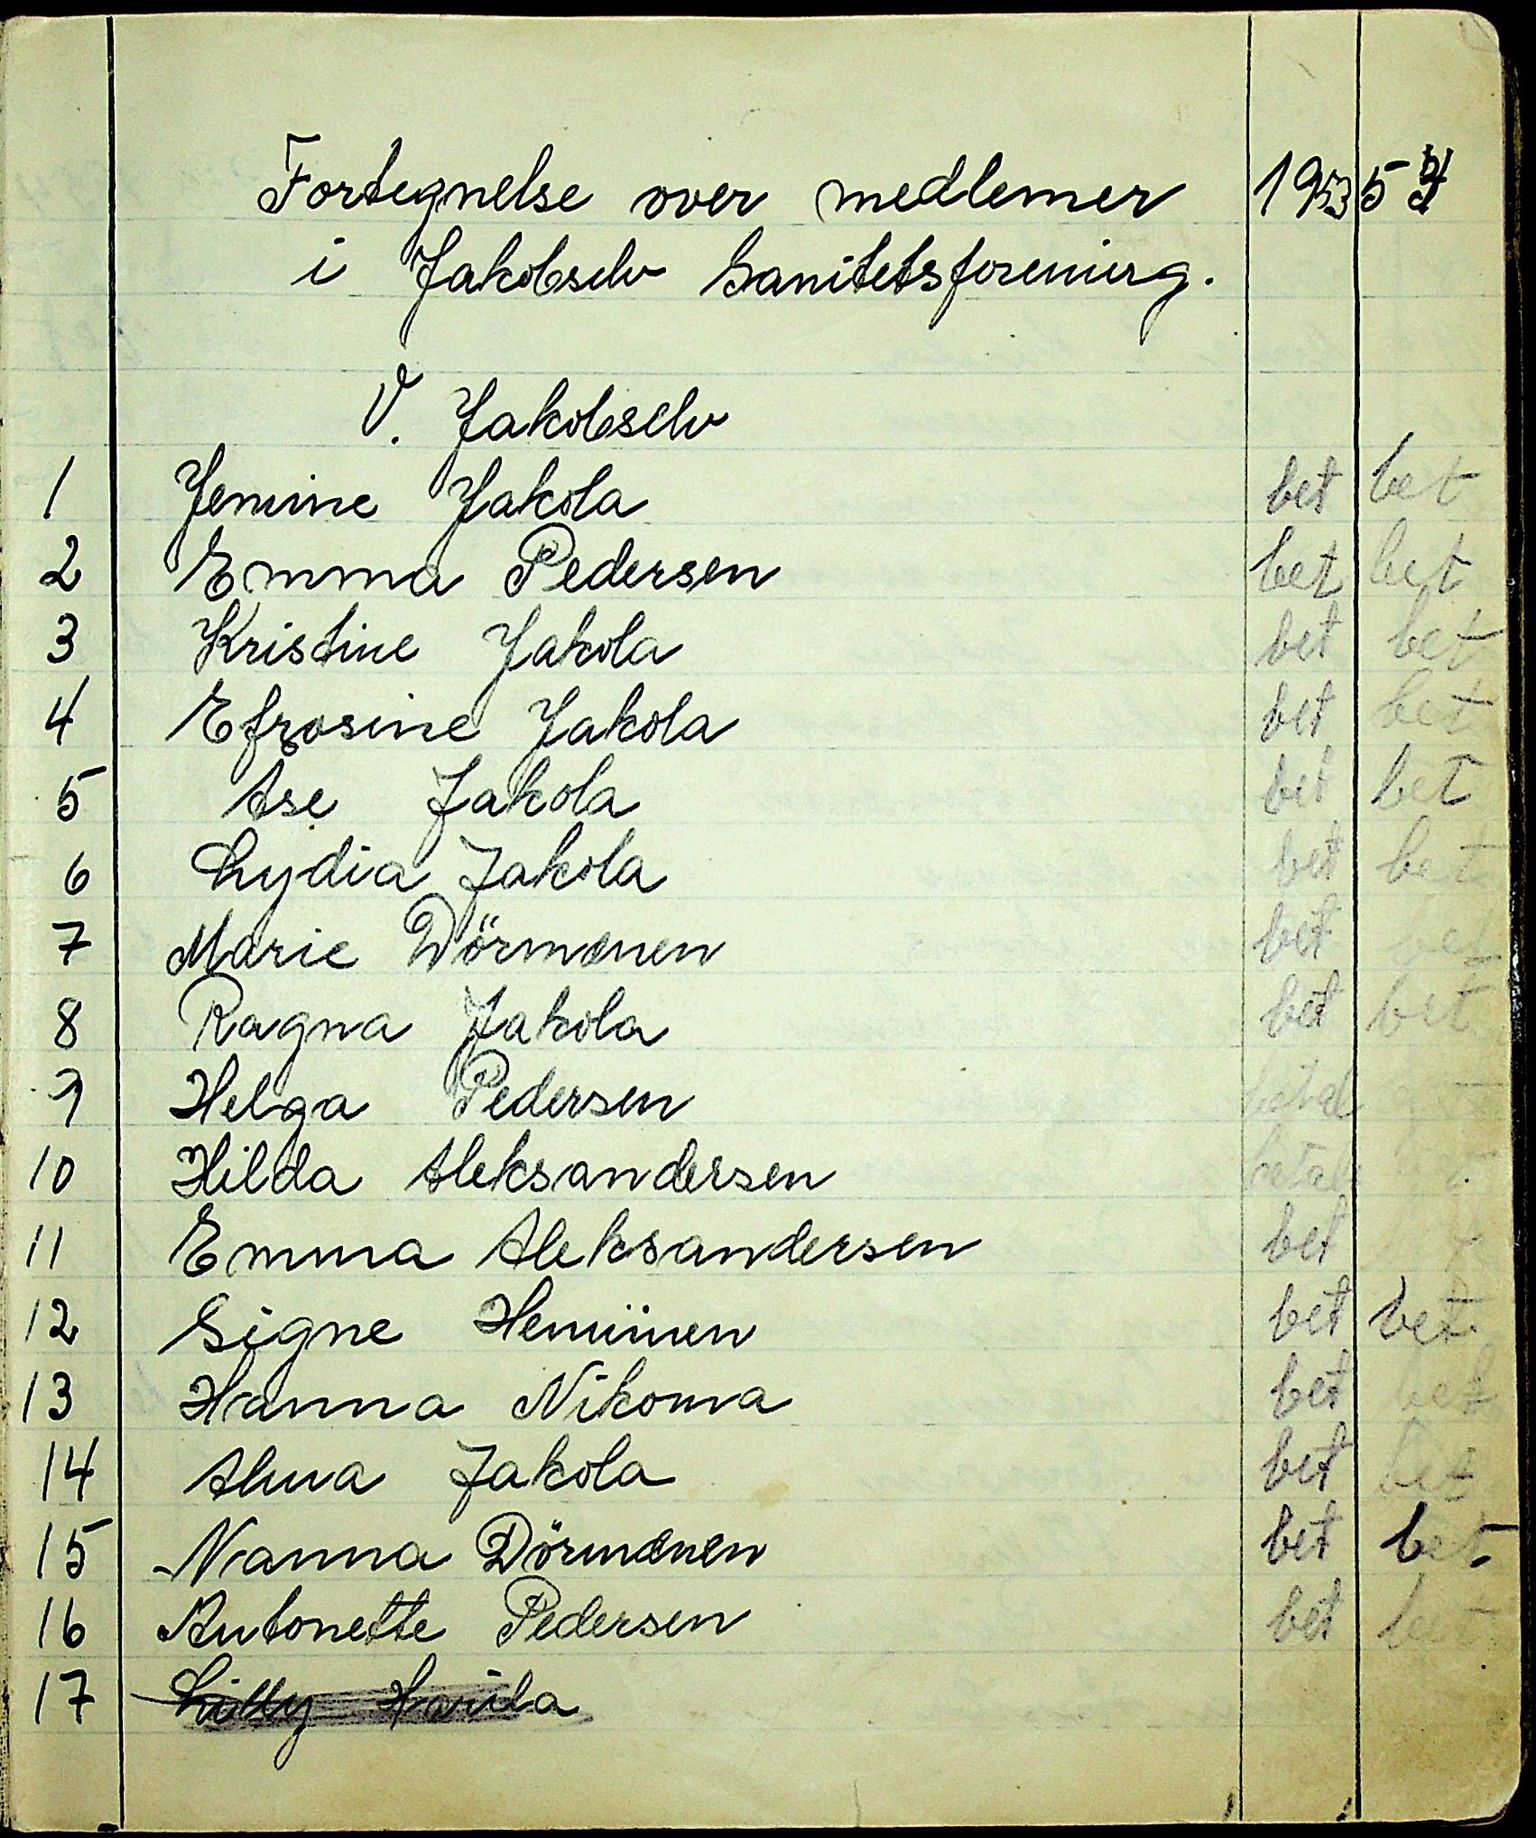 Fortegnelse over medlemer 1953 54
i Jakobselv Sanitetsforening.
V. Jakobselv
1 Jemine Jakola bet bet
2 Emma Pedersen bet bet
3 Kristine Jakola bet bet
4 Efrosine Jakola bet bet
5 Ase Jakola bet bet
6 Lydia Jakola bet bet
7 Marie Dörmænen bet bet
8 Ragna Jakola bet bet
9 Helga Pedersen betal
10 Hilda Aleksandersen betal
11 Emma Aleksandersen bet
12 Signe Heminen bet bet
13 Hanna Nikoma bet bet
14 Alma Jakola bet bet
15 Nanna Dörmænen bet bet
16 Antonette Pedersen bet bet
17 Lilly Harila